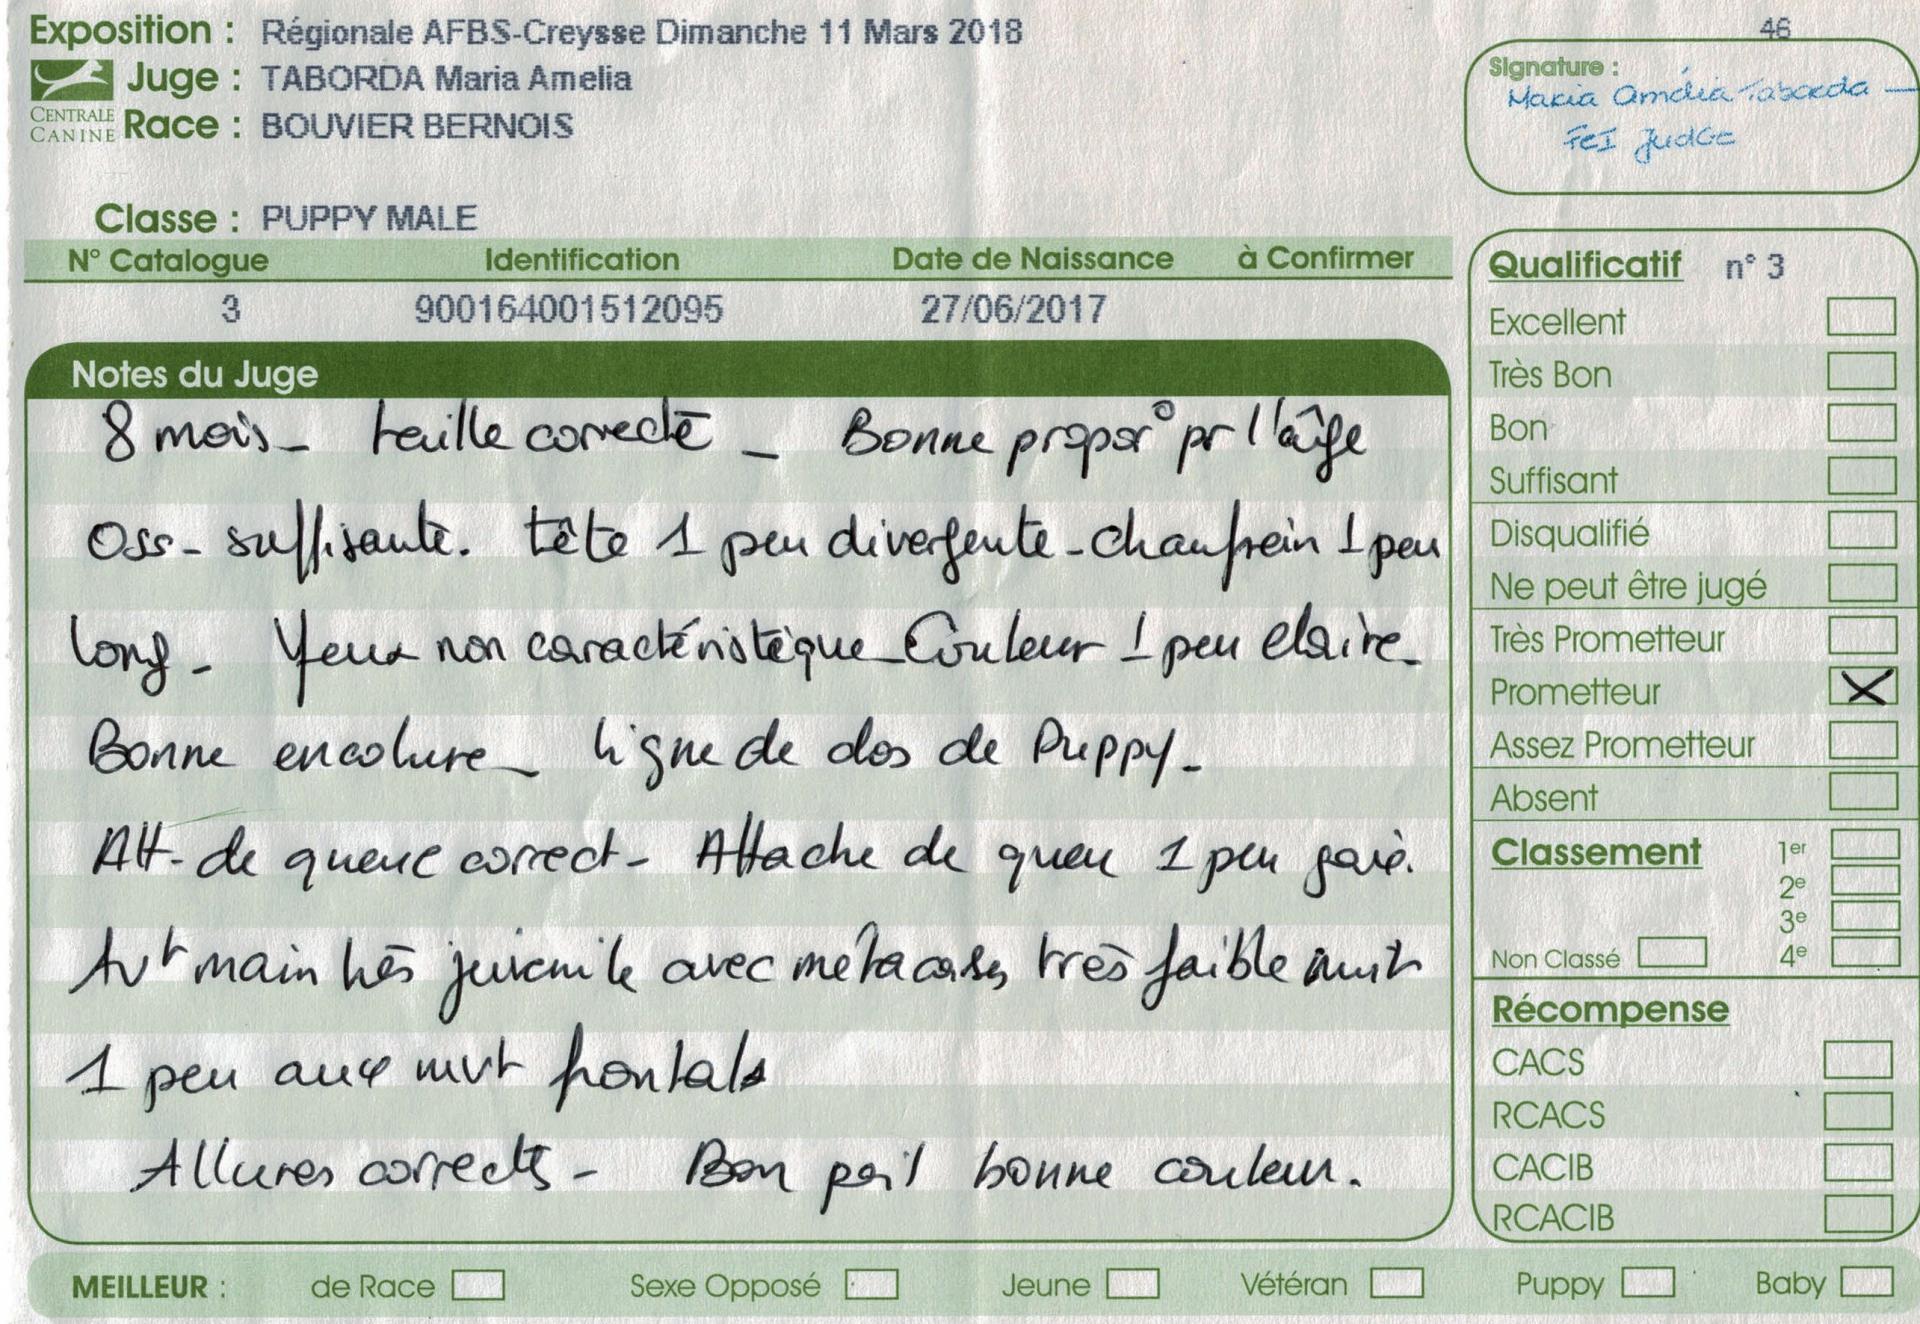 Exposition : Régionale AFBS-Creysse Dimanche 11 Mars 2018
46
Juge : TABORDA Maria Amelia
CENTRALE CANINE
Race : BOUVIER BERNOIS
Signature :
Maria Amélia Taborda
FCI Judge
Classe : PUPPY MALE
N° Catalogue Identification Date de Naissance à Confirmer
3 900164001512095 27/06/2017
Notes du Juge
8 mois - taille correcte - Bonne propor° pr l'âge
Oss - suffisante. tête 1 peu divergente - chanfrein 1 peu
long - Yeux non caractéristique - Couleur 1 peu claire -
Bonne encolure - ligne de dos de Puppy -
Att - de queue correct - Attache de queu 1 peu gaie.
Avt main très juvenile avec métacarpes très faible
1 peu aux mvt frontals
Allures corrects - Bon poil bonne couleur.
Qualificatif n° 3
Excellent
Très Bon
Bon
Suffisant
Disqualifié
Ne peut être jugé
Très Prometteur
Prometteur X
Assez Prometteur
Absent
Classement 1er
2e
3e
Non Classé 4e
Récompense
CACS
RCACS
CACIB
RCACIB
MEILLEUR : de Race Sexe Opposé Jeune Vétéran Puppy Baby